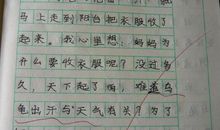 马上走到阳台把衣服收了
起来。我心里想：妈妈为
什么要收衣服呢？没过多
久，天下起了雨，难道乌
龟出汗与天气有关？为了